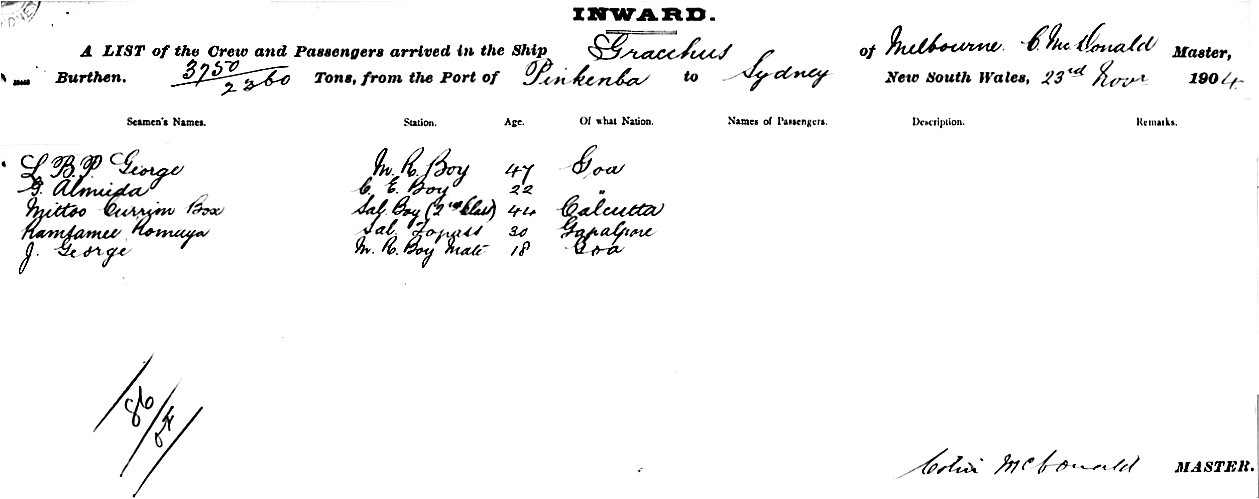 INWARD.
A LIST of the Crew and Passengers arrived in the Ship Gracchus of Melbourne. C. McDonald Master,
Burthen. 3750/2360 Tons, from the Port of Pinkenba to Sydney New South Wales, 23rd Novr 1904
Seamen's Names. Station. Age. Of what Nation. Names of Passengers. Description. Remarks.
L B.P. George M. R. Boy 47 Goa
G. Almeida C. E. Boy 22 "
Mittoo Currim Box Sal. Boy (2nd Class) 44 Calcutta
Ramsamee Romaya Sal. Topass 30 Gapalpore
J. George M. R. Boy Mate 18 Goa
86/04
Colin McDonald MASTER.